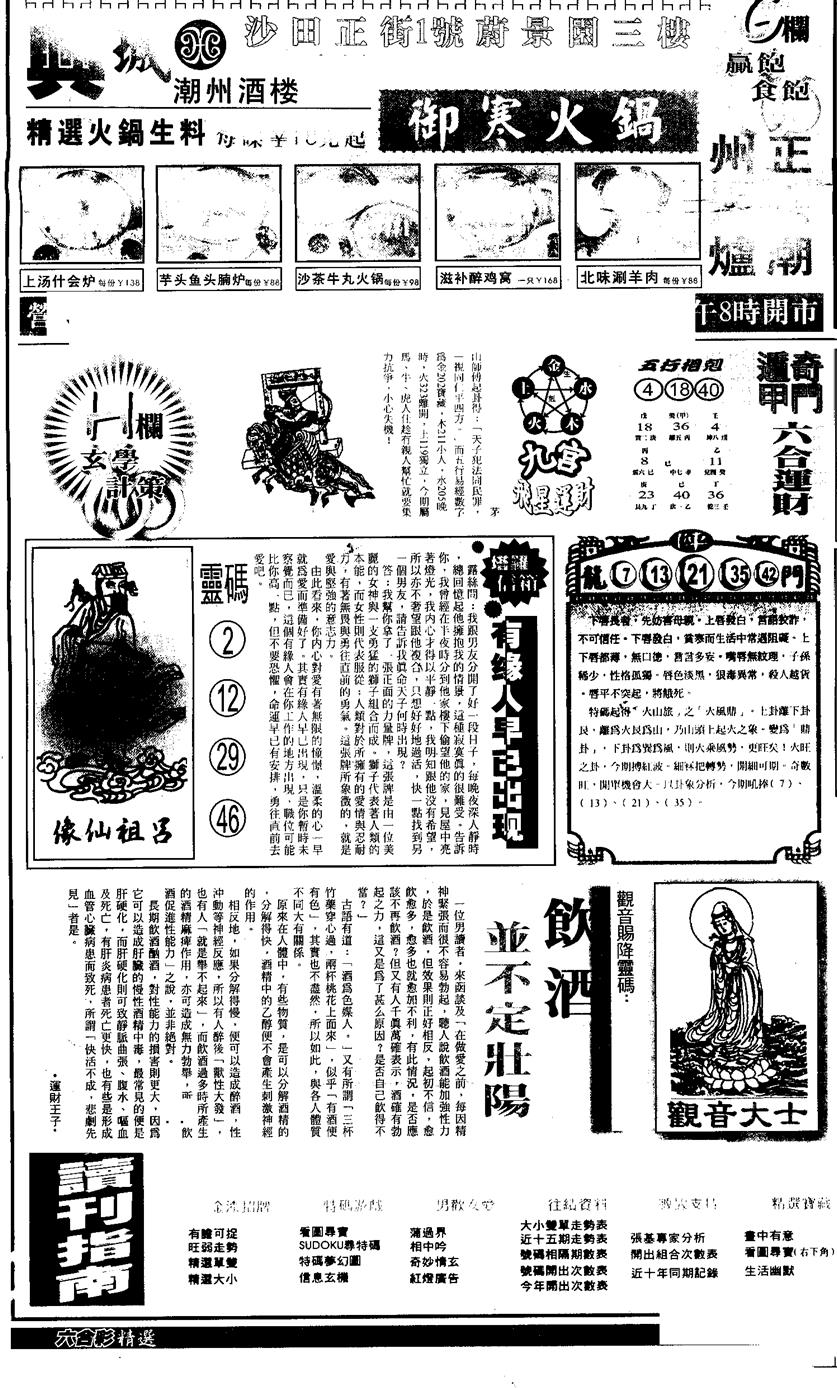 興城
潮州酒楼
沙田正街1號蔚景園三樓
欄
贏飽
食飽
精選火鍋生料
起
御寒火鍋
正
州
潮
爐
上汤什会炉 每份￥138
芋头鱼头腩炉 每份￥88
沙茶牛丸火锅 每份￥98
滋补醉鸡窝 一只￥168
北味涮羊肉 每份￥88
營
午8時開市
奇門
遁甲
六合運財
五行相剋
4 18 40
戊 癸(甲) 壬
18 36 4
丙 乙
8 己 11
庚 丁
23 40 36
金
水
木
火
土
九宮
飛星運財
茅
山師傅起卦得：「天子犯法同民罪，
一視同仁平四方。」而五行易經數了
為金202寶藏，木211小人，水205晚
時，火323難開，土119獨立，今期屬
馬、牛、虎人仕趁有親人幫忙就要集
力抗爭，小心失機！
欄
玄學
計策
坪
龍 7 13 21 35 42 門
下唇長者，先妨害母親。上唇發白，言語狡詐，
不可信任。下唇發白，貧寒而生活中常遇阻礙。上
下唇都薄，無口德，言言多妄。嘴唇無紋理，子孫
稀少，性格孤獨。唇色淡黑，狠毒異常，殺人越貨
。唇平不突起，將餓死。
特碼起得「火山旅」之「火風鼎」。上卦離下卦
艮，離為火艮為山，乃山頭上起火之象。變為「鼎
卦」，下卦為巽為風，則火乘風勢，更旺矣！火旺
之卦，今期搏紅波。細冧把轉勢，開細可期。奇數
旺，開單機會大。以卦象分析，今期吼捧（7）、
（13）、（21）、（35）。
塔羅
信箱
有緣人早已出現
露絲問：我跟男友分開了好一段日子，每晚夜深人靜時
，總回憶起他擁抱我的情景，這種寂寞真的很難受。告訴
你，我曾經在半夜時分到他家樓下偷望他的家，見屋中亮
著燈光，我內心才得以平靜一點，我明知跟他沒有希望，
所以亦不奢望跟他複合，只想好好地過活，快一點找到另
一個男友，請告訴我真命天子何時出現？
答：我幫你拿了一張正面的力量牌，這張牌是由一位美
麗的女神與一支勇猛的獅子組合而成。獅子代表著人類的
本能，而女性則代表服從；人類對於所擁有的愛情與忍耐
力，有著無畏與勇往直前的勇氣。這張牌所象徵的，就是
愛與堅強的意志力。
由此看來，你內心對愛有著無限的憧憬，溫柔的心一早
就為愛而準備好了。其實有緣人早已出現，只是你暫時未
察覺而已，這個有緣人會在你工作的地方出現，職位可能
比你高一點，但不要恐懼，命運早已有安排，勇往直前去
愛吧。
靈碼
2
12
29
46
呂祖仙像
觀音賜降靈碼：
觀音大士
飲酒
並不定壯陽
一位男讀者，來函談及「在做愛之前，每因精
神緊張而很不容易勃起，聽人說飲酒能加強性力
，於是飲酒，但效果則正好相反，起初不信，愈
飲愈多，愈多也就愈加不利，有此情況，是否應
該不再飲酒？但又有人千真萬確表示，酒確有勃
起之力，這又是為了甚麼原因？是否自己飲得不
當？」
古語有道：「酒為色媒人。」又有所謂「三杯
竹葉穿心過，兩杯桃花上面來」，似乎「有酒便
有色」，其實也不盡然，所以如此，與各人體質
不同大有關係。
原來在人體中，有些物質，是可以分解酒精的
，分解得快，酒精中的乙醇便不會產生刺激神經
的作用。
相反地，如果分解得慢，便可以造成醉酒，性
沖動等神經反應，所以有人醉後「獸性大發」，
也有人「就是舉不起來」，而飲酒過多時所產生
的酒精麻痺作用，亦可造成無力勃舉，所 飲
酒促進性能力」之說，並非絕對。
長期飲酒酗酒，對性能力的損害則更大，因為
它可以造成肝臟的慢性酒精中毒，最常見的便是
肝硬化，而肝硬化則可致靜脈曲張、腹水、嘔血
及死亡，有肝炎病患者死亡更快，也有些是形成
血管心臟病患而致死，所謂「快活不成，悲劇先
見」者是。
・運財王子・
讀刊指南
有膽可捉
旺弱走勢
精選單雙
精選大小
特碼游戲
看圖尋寶
SUDOKU尋特碼
特碼夢幻圖
信息玄機
男歡女愛
蒲過界
相中吟
奇妙情玄
紅燈廣告
往績資料
大小雙單走勢表
近十五期走勢表
號碼相隔期數表
號碼開出次數表
今年開出次數表
張基專家分析
開出組合次數表
近十年同期記錄
精選寶藏
畫中有意
看圖尋寶(右下角)
生活幽默
六合彩精選